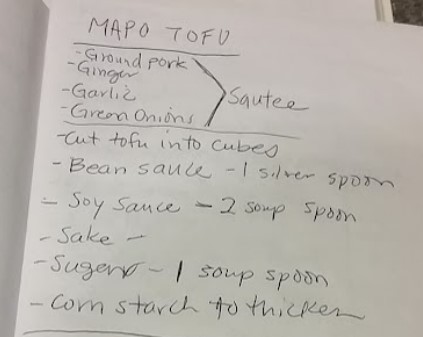 MAPO TOFU
- Ground pork
- Ginger
- Garlic
- Green Onions
Sautee
- Cut tofu into cubes
- Bean sauce - 1 silver spoon
- Soy Sauce - 2 soup spoon
- Sake -
- Suger - 1 soup spoon
- Corn starch to thicken